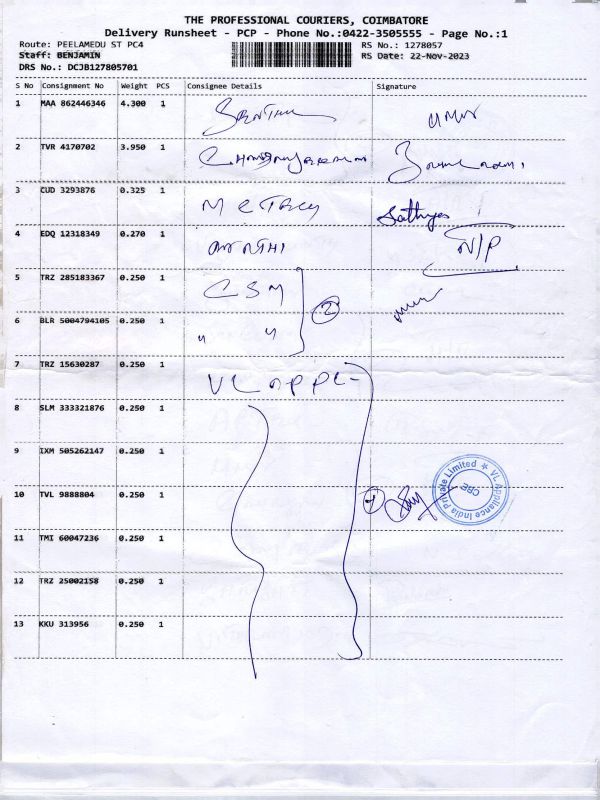 THE PROFESSIONAL COURIERS, COIMBATORE
Delivery Runsheet - PCP - Phone No.:0422-3505555 - Page No.:1
Route: PEELAMEDU ST PC4 RS No.: 1278057
Staff: BENJAMIN RS Date: 22-Nov-2023
DRS No.: DCJB127805701
S No Consignment No Weight PCS Consignee Details Signature
1 MAA 862446346 4.300 1
2 TVR 4170702 3.950 1
3 CUD 3293876 0.325 1 Sathya
4 EDQ 12318349 0.270 1 N/P
5 TRZ 285183367 0.250 1 CSM
6 BLR 5004794105 0.250 1 " " 2
7 TRZ 15630287 0.250 1 VL APPL-
8 SLM 333321876 0.250 1
9 IXM 505262147 0.250 1
10 TVL 9888804 0.250 1 7 VL Appliance India Private Limited ★ CBE
11 TMI 60047236 0.250 1
12 TRZ 25002158 0.250 1
13 KKU 313956 0.250 1